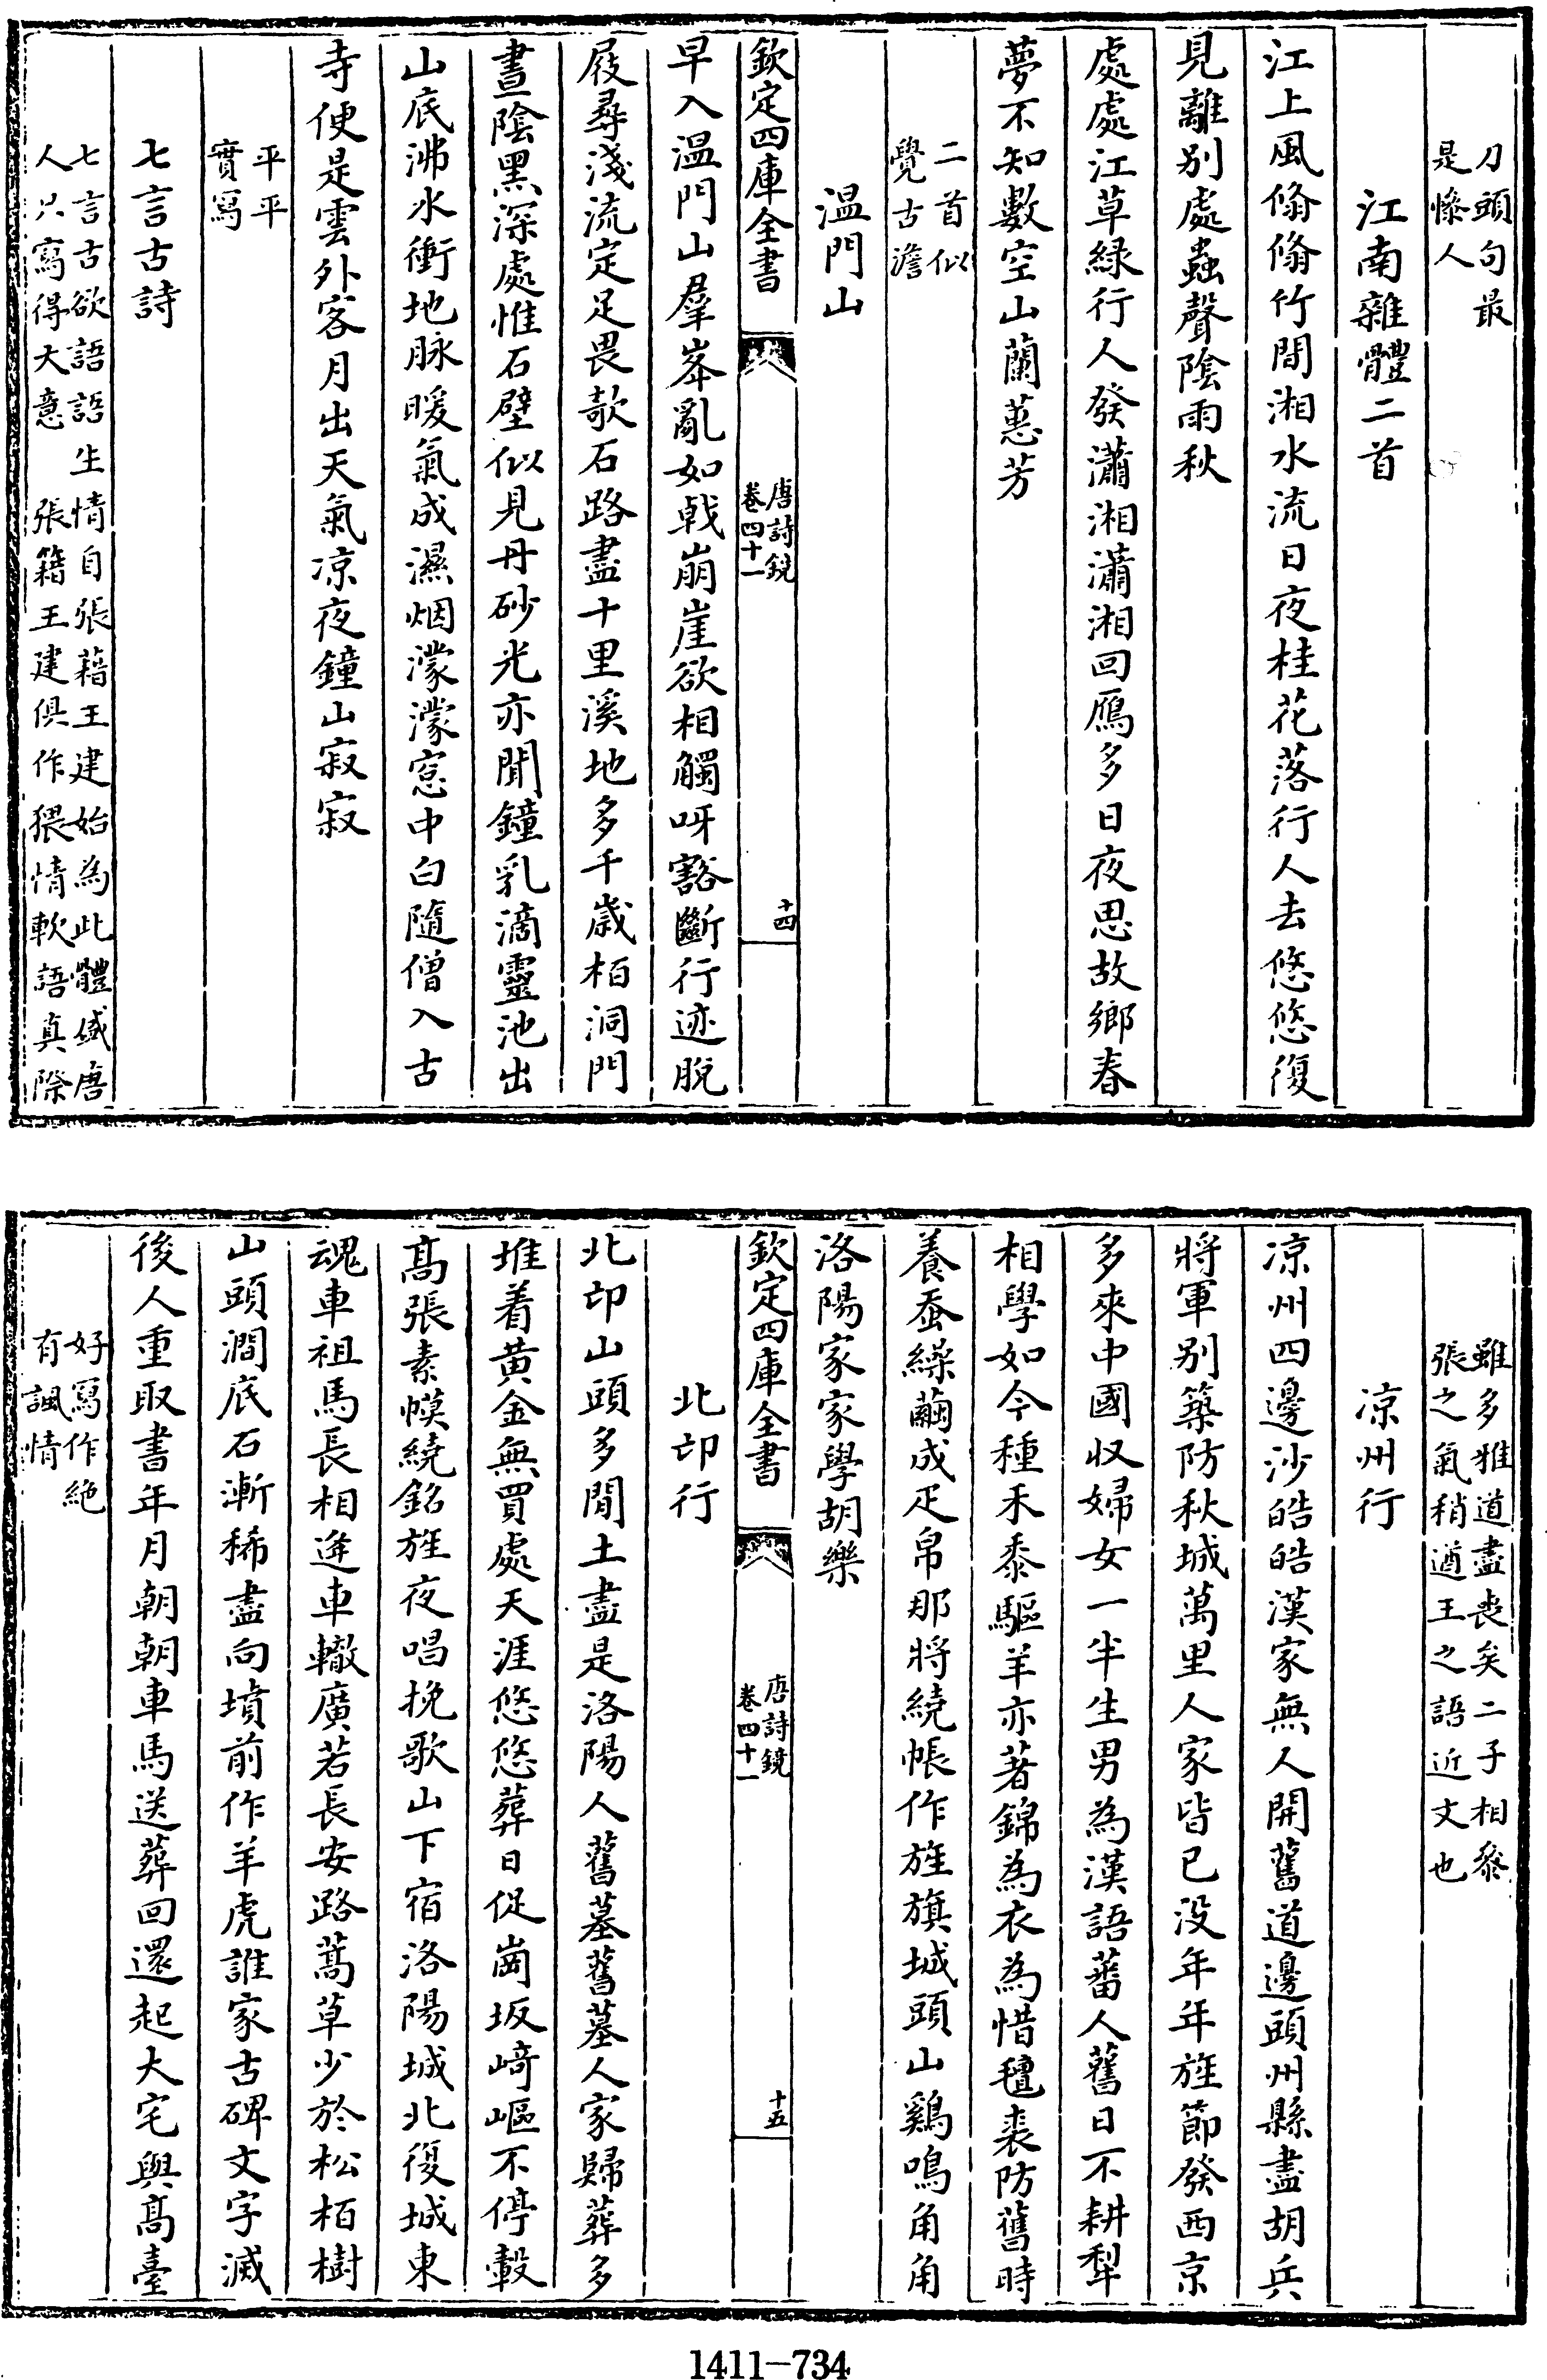 刀頭句最
是慘人
江南雜體二首
江上風翛翛竹間湘水流日夜桂花落行人去悠悠復
見離别處蟲聲陰雨秋
處處江草緑行人發瀟湘瀟湘回鴈多日夜思故鄉春
夢不知數空山蘭蕙芳
二首似
覺古澹
温門山
早入温門山羣峯亂如戟崩崖欲相觸呀豁斷行迹脫
欽定四庫全書
唐詩鏡
卷四十一
十四
屐尋淺流定足畏欹石路盡十里溪地多千歲栢洞門
晝陰黑深處惟石壁似見丹砂光亦聞鐘乳滴靈池出
山底沸水衝地脉暖氣成濕烟濛濛窓中白隨僧入古
寺便是雲外客月出天氣凉夜鐘山寂寂
平平
實寫
七言古詩
七言古欲語語生情自張藉王建始為此體盛唐
人只寫得大意　張籍王建俱作猥情軟語真際
雖多雅道盡喪矣二子相叅
張之氣稍遒王之語近丈也
凉州行
凉州四邊沙皓皓漢家無人開舊道邊頭州縣盡胡兵
將軍别築防秋城萬里人家皆已没年年旌節發西京
多來中國收婦女一半生男為漢語蕃人舊日不耕犁
相學如今種禾黍驅羊亦著錦為衣為惜氊裘防舊時
養蚕繰繭成疋帛那將繞帳作旌旗城頭山鷄鳴角角
洛陽家家學胡樂
欽定四庫全書
唐詩鏡
卷四十一
十五
北邙行
北邙山頭多閒土盡是洛陽人舊墓舊墓人家歸葬多
堆着黄金無買處天涯悠悠葬日促崗坂﨑嶇不停轂
髙張素幙繞銘旌夜唱挽歌山下宿洛陽城北復城東
魂車祖馬長相逄車轍廣若長安路蒿草少於松栢樹
山頭澗底石漸稀盡向墳前作羊虎誰家古碑文字滅
後人重取書年月朝朝車馬送葬回還起大宅與髙臺
好寫作絶
有諷情
1411—734